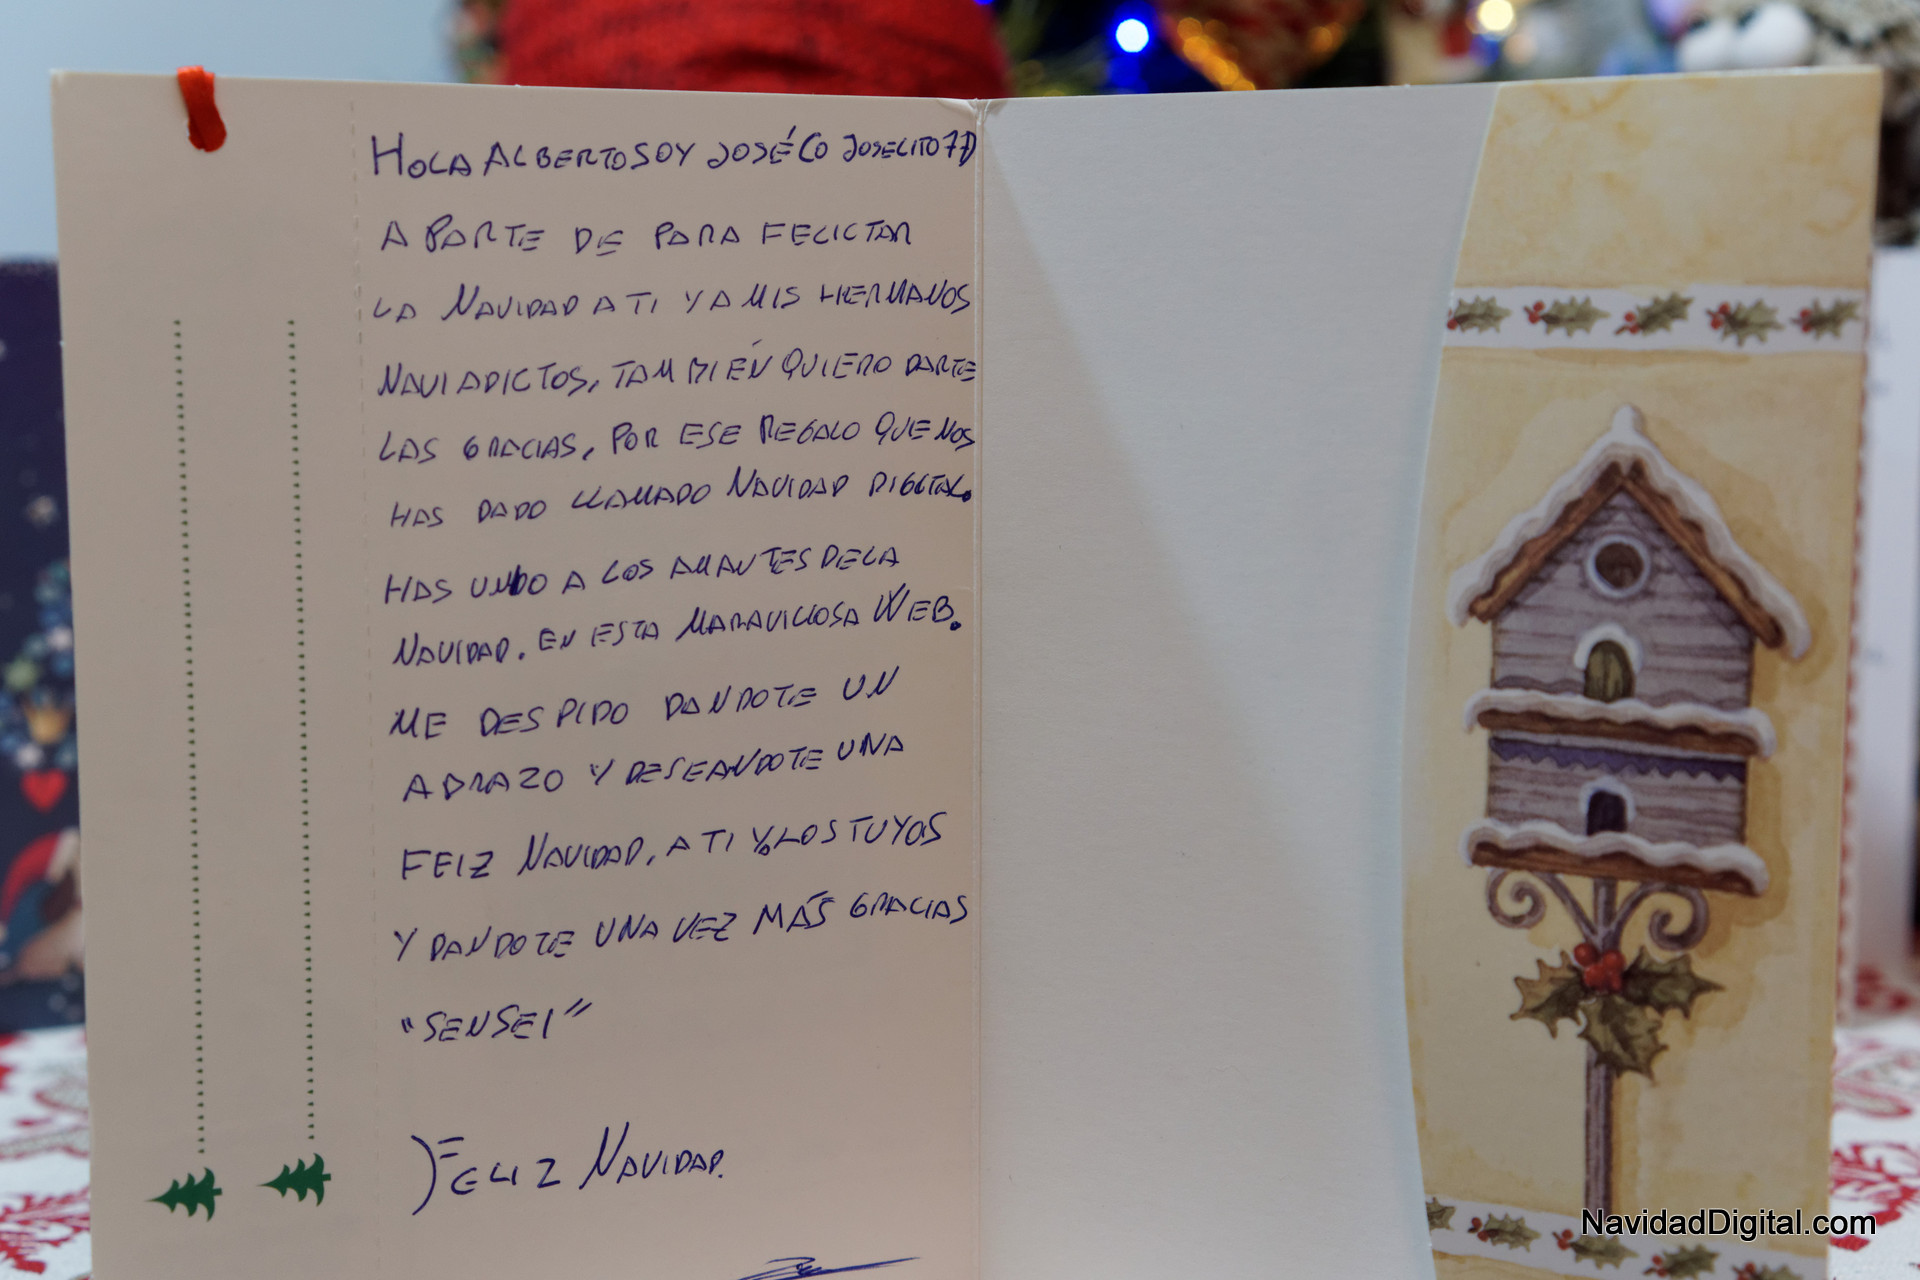 HOLA ALBERTO SOY JOSÉ CO JOSELITO77D
A PARTE DE PARA FELICTAR
LA NAVIDAD A TI Y A MIS HERMANOS
NAVIADICTOS, TAMBIÉN QUIERO DARTE
LAS GRACIAS, POR ESE REGALO QUE NOS
HAS DADO LLAMADO NAVIDAD DIGITAL.
HAS UNIDO A LOS AMANTES DE LA
NAVIDAD. EN ESTA MARAVILLOSA WEB.
ME DESPIDO DANDOTE UN
ABRAZO Y DESEANDOTE UNA
FELIZ NAVIDAD, A TI Y LOS TUYOS
Y DANDOTE UNA VEZ MÁS GRACIAS
"SENSEI"
FELIZ NAVIDAD.
NavidadDigital.com